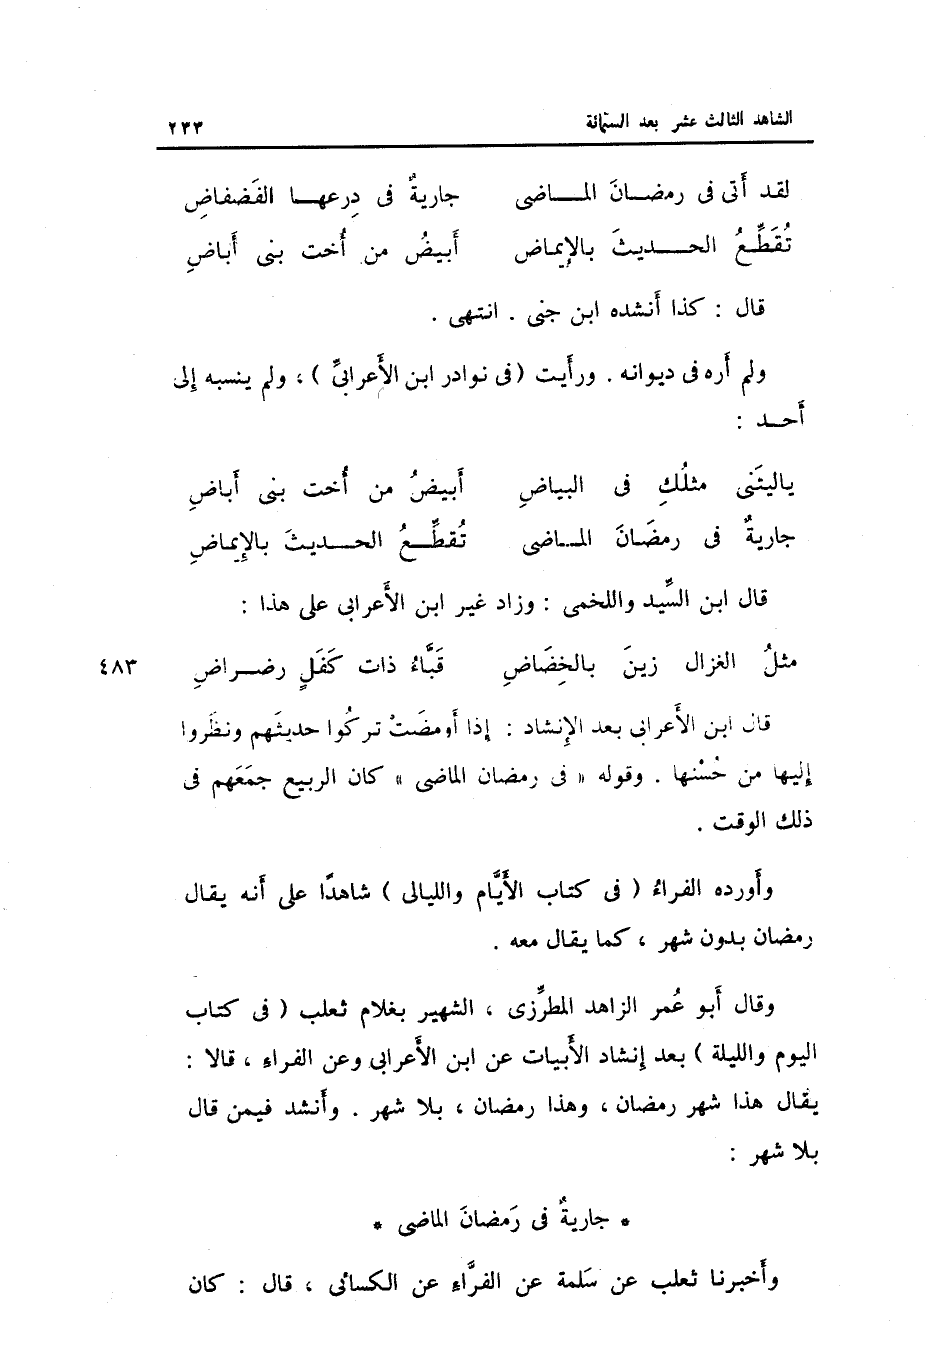 الشاهد الثالث عشر بعد الستمائة ٢٣٣
لقد أتى فى رمضـان المـــاضى جاريةٌ فى دِرعهــا الفَضفاضِ
تُقَطِّـعُ الحـــديثَ بالإِيماض أبيضُ من أُخت بنى أَباضِ
قال : كذا أَنشده ابن جنى . انتهى .
ولم أَره فى ديوانه . ورأَيت (فى نوادر ابن الأَعرابىِّ ) ، ولم ينسبه إلى
أَحـد :
ياليتَنى مثلُكِ فى البياضِ أبيضُ من أُخت بنى أَباضِ
جاريةٌ فى رمضَانَ المـاضى تُقطِّـعُ الحـــديثَ بالإِيماضِ
قال ابن السِّيد واللخمى : وزاد غير ابن الأَعرابى على هذا :
مثلُ الغزال زينَ بالخِضَاضِ قَبَّاءُ ذات كَفَلٍ رضــراضِ ٤٨٣
قال ابن الأَعرابى بعد الإِنشاد : إذا أَومضَتْ تركُوا حديثَهم ونظَروا
إليها من حُسْنها . وقوله « فى رمضان الماضى » كان الربيع جمَعَهم فى
ذلك الوقت .
وأَورده الفراءُ ( فى كتاب الأَيَّام والليالى ) شاهدًا على أَنه يقال
رمضان بدون شهر ، كما يقال معه .
وقال أَبو عُمر الزاهد المطرِّزى ، الشهير بغلام ثعلب ( فى كتاب
اليوم والليلة ) بعد إنشاد الأَبيات عن ابن الأَعرابى وعن الفراءِ ، قالا :
يقال هذا شهر رمضان ، وهذا رمضان ، بلا شهر . وأَنشد فيمن قال
بلا شهر :
* جاريةٌ فى رَمضانَ الماضى *
وأَخبرنا ثعلب عن سَلمة عن الفرَّاءِ عن الكسائى ، قال : كان